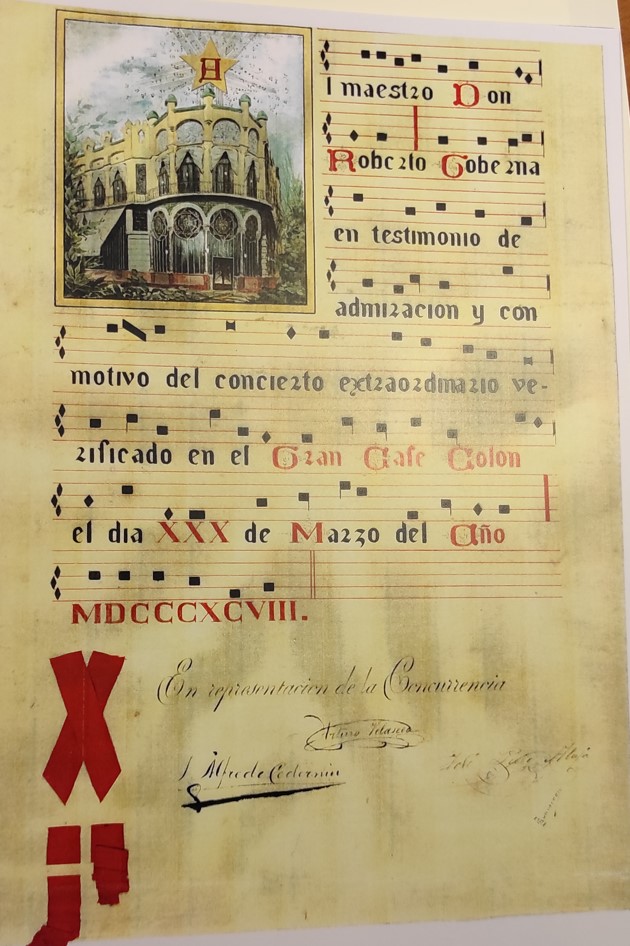 A
l maestro Don
Roberto Goberna
en testimonio de
admiracion y con
motivo del concierto extraordinario ve-
rificado en el Gran Cafe Colon
el dia XXX de Marzo del Año
MDCCCXCVIII.
En representacion de la Concurrencia
Arturo
Alfredo
José